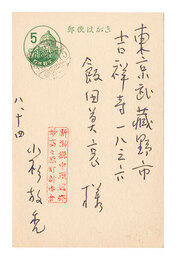 郵便はがき
5
東京武蔵野市
吉祥寺一八三六
飯田善衷様
八、十四
新潟縣中頸城郡
妙高々原町新赤倉
小杉放庵